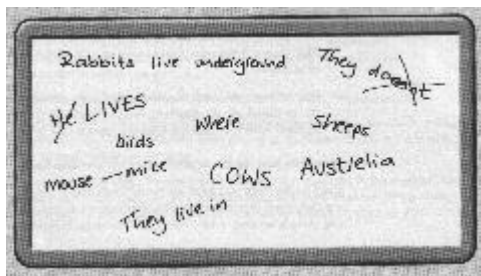 Rabbits live underground
They doesnt
He LIVES
birds
where
sheeps
mouse — mice
COWS
Austrelia
They live in